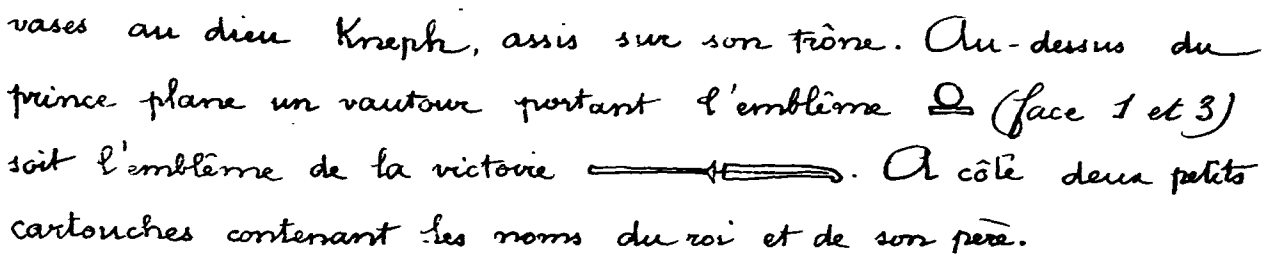 vases au dieu Kneph, assis sur son trône. Au-dessus du
prince plane un vautour portant l'emblême (face 1 et 3)
soit l'emblême de la victoire. A côté deux petits
cartouches contenant les noms du roi et de son père.